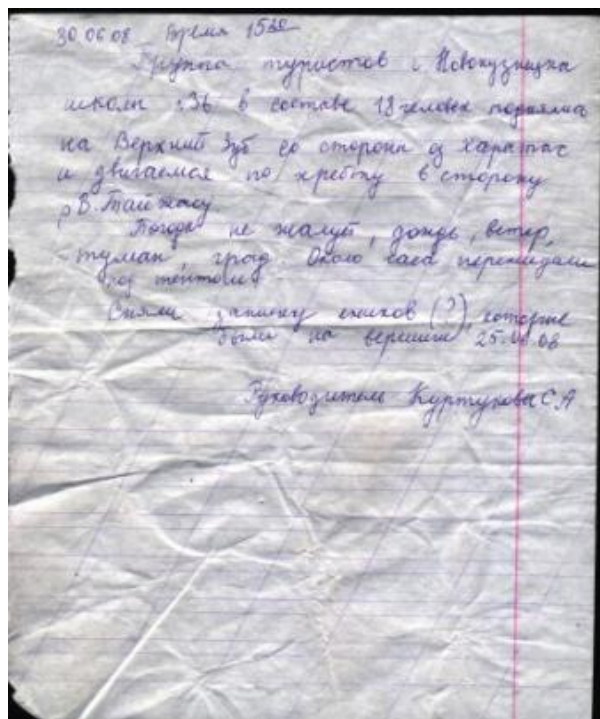 30 06 08 Время 15 30
Группа туристов г. Новокузнецка
школы 36 в составе 18 человек поднялись
на Верхний Зуб со стороны оз Харатас
и двигаемся по хребту в сторону
р В. Тайжасу.
Погода не жалует, дождь, ветер,
туман, град. Около часа пережидали
под тентом.
Сняли записку (?), которые
были на вершине 25.06.08
Руководитель Куртукова С А